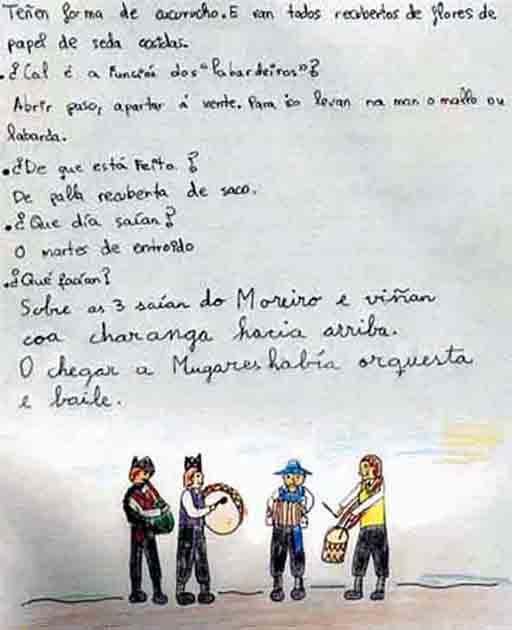 Teñen forma de cucurucho. E van todos recubertos de flores de
papel de seda cosidas.
. ¿Cal é a función dos "labardeiros"?
Abrir paso, apartar á xente. Para iso levan na man o mallo ou
labarda.
. ¿De que está feita?
De palla recuberta de saco.
. ¿Que día saían?
O martes de entroido
. ¿Qué facían?
Sobre as 3 saían do Moreiro e viñan
coa charanga hacia arriba.
O chegar a Mugares había orquesta
e baile.